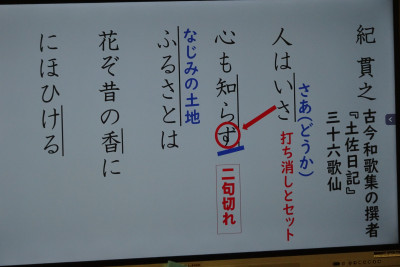 紀 貫之 古今和歌集の撰者
『土佐日記』
三十六歌仙
さあ(どうか)
人はいさ
打ち消しとセット
心も知らず
二句切れ
なじみの土地
ふるさとは
花ぞ昔の香に
にほひける